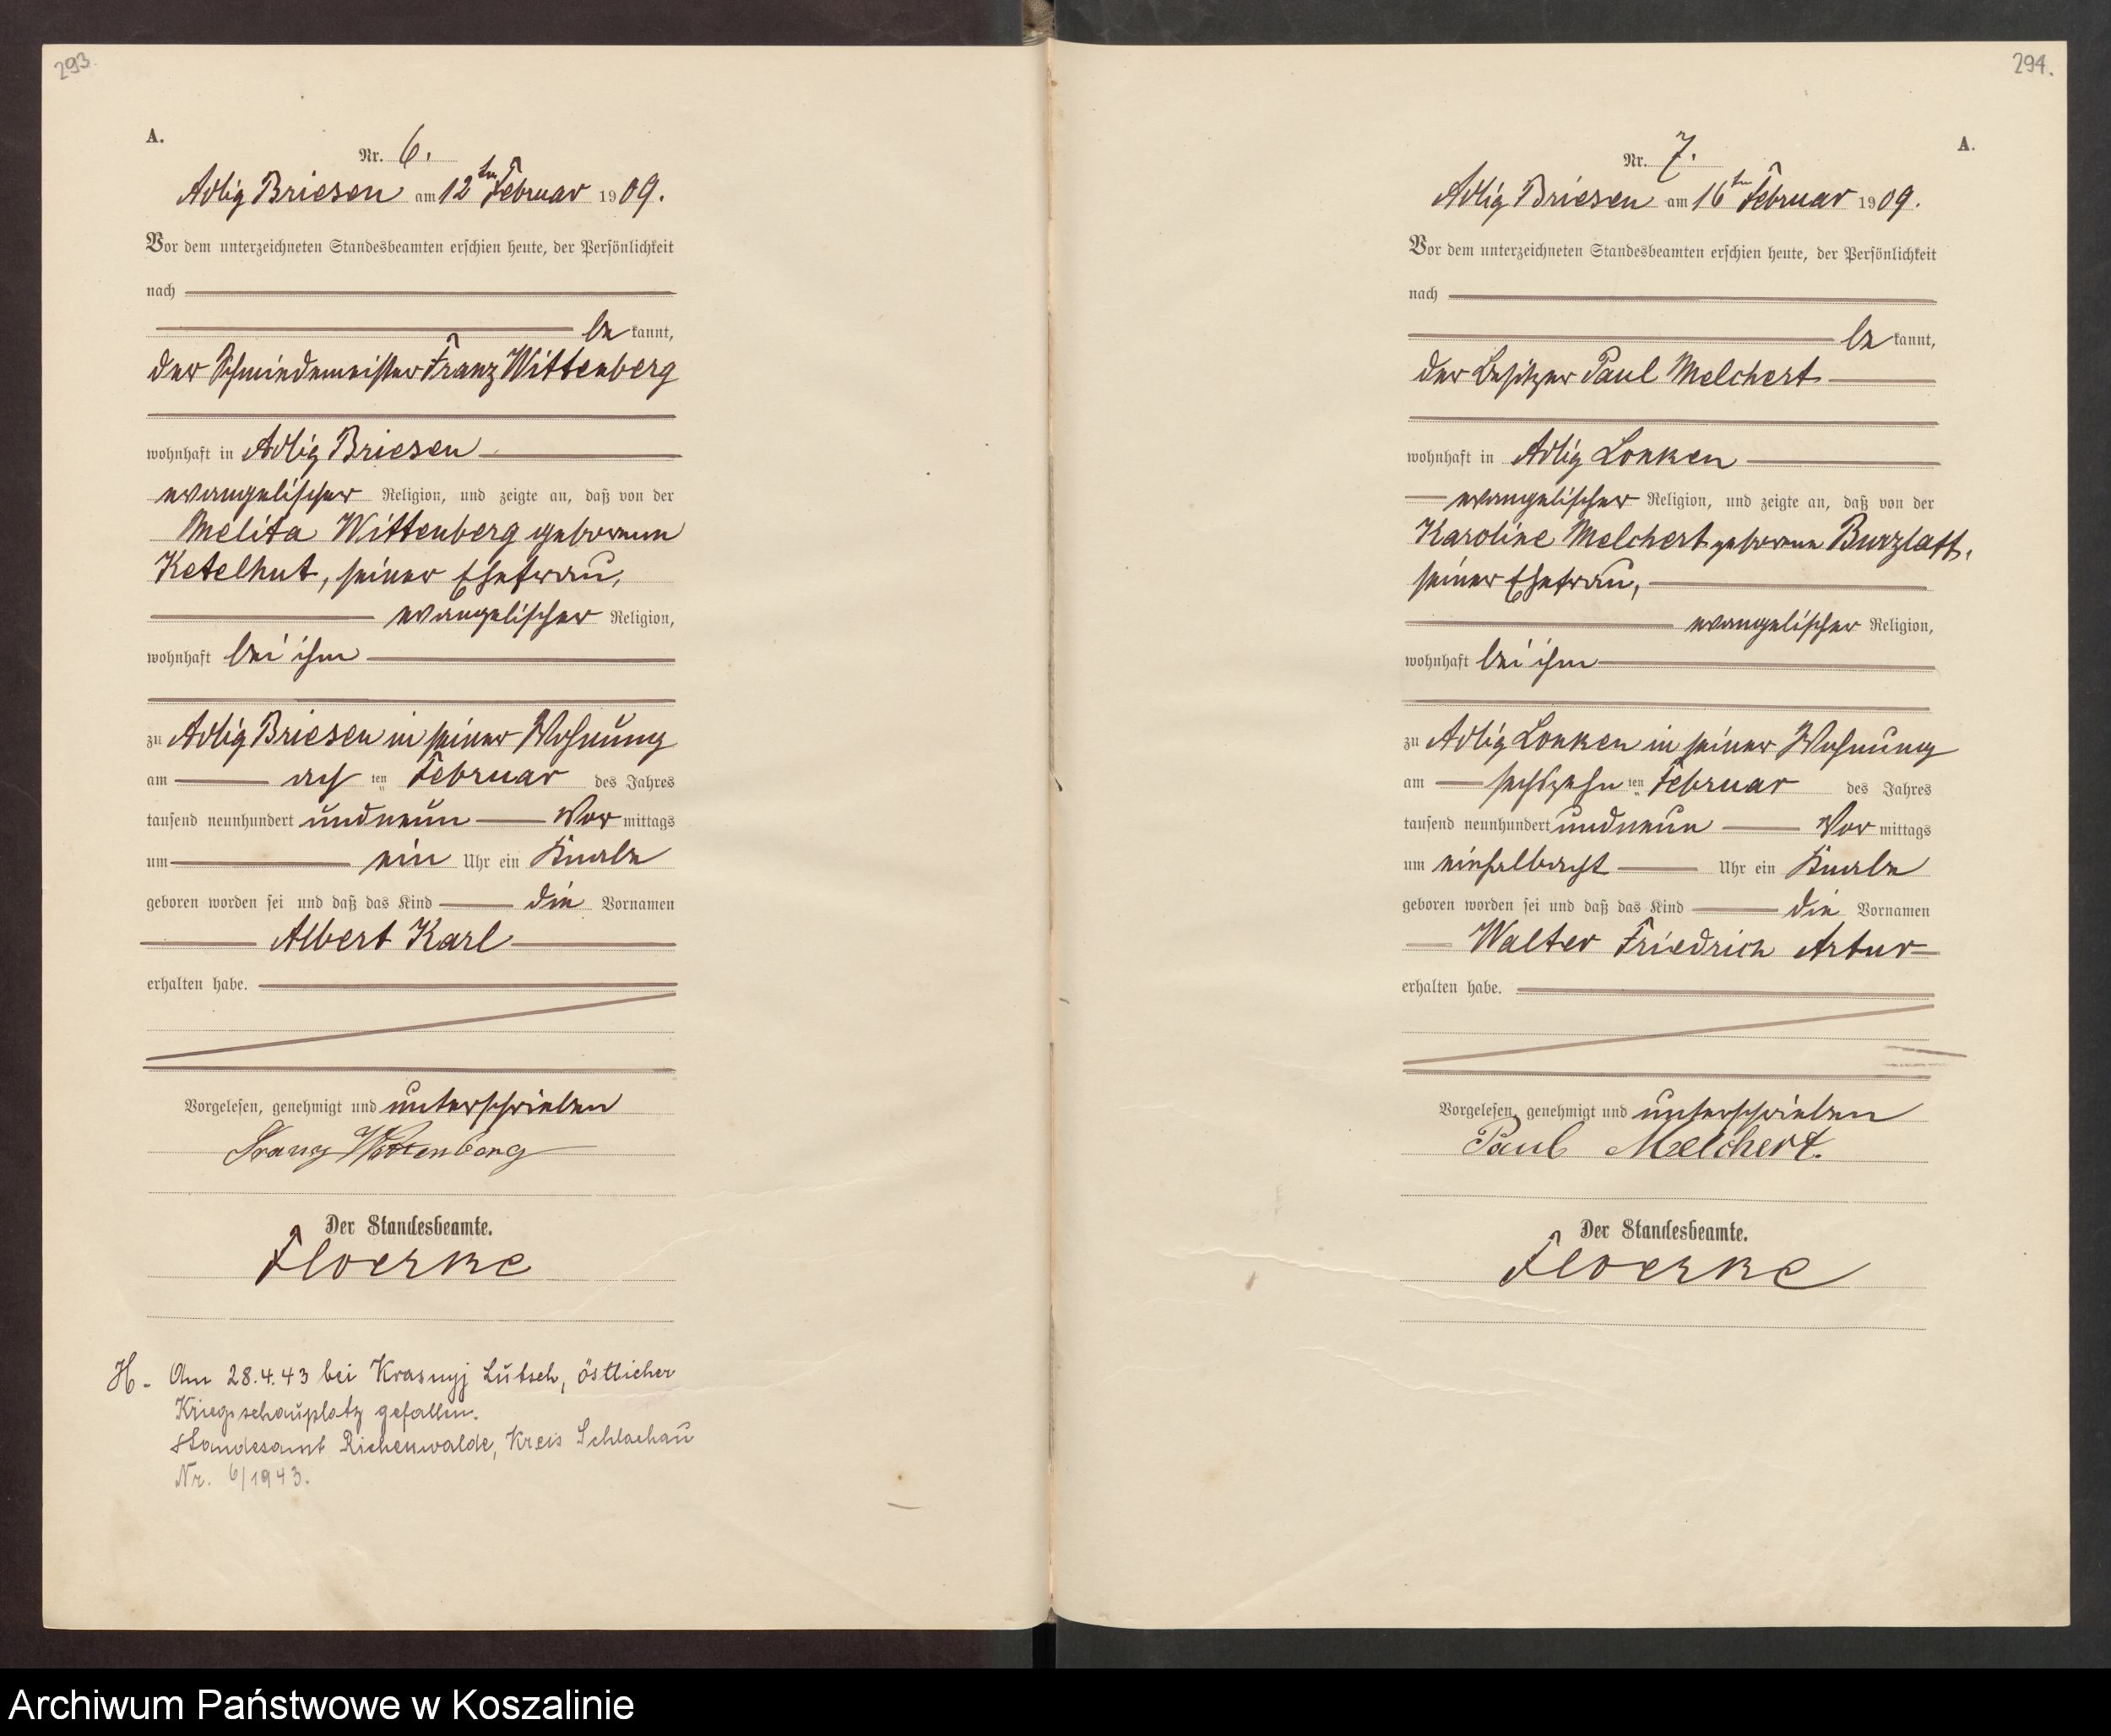 293.
A.
Nr. 6.
Adlig Briesen am 12ten Februar 1909.
Vor dem unterzeichneten Standesbeamten erschien heute, der Persönlichkeit
nach
be kannt,
der Schmiedemeister Franz Wittenberg
wohnhaft in Adlig Briesen
evangelischer Religion, und zeigte an, daß von der
Melita Wittenberg geborenen
Ketelhut, seiner Ehefrau,
evangelischer Religion,
wohnhaft bei ihm
zu Adlig Briesen in seiner Wohnung
am acht ten Februar des Jahres
tausend neunhundert undneun Vor mittags
um ein Uhr ein Knabe
geboren worden sei und daß das Kind die Vornamen
Albert Karl
erhalten habe.
Vorgelesen, genehmigt und unterschrieben
Franz Wittenberg
Der Standesbeamte.
Floerke
H. Am 28.4.43 bei Krasnyj Lutsch, östlicher
Kriegsschauplatz gefallen.
Standesamt Richenwalde, Kreis Schlochau
Nr. 6/1943.
294.
A.
Nr. 7.
Adlig Briesen am 16ten Februar 1909.
Vor dem unterzeichneten Standesbeamten erschien heute, der Persönlichkeit
nach
be kannt,
der Besitzer Paul Melchert
wohnhaft in Adlig Lonken
evangelischer Religion, und zeigte an, daß von der
Karoline Melchert geborene Burzlaff,
seiner Ehefrau,
evangelischer Religion,
wohnhaft bei ihm
zu Adlig Lonken in seiner Wohnung
am sechszehn ten Februar des Jahres
tausend neunhundert undneun Vor mittags
um einhalbacht Uhr ein Knabe
geboren worden sei und daß das Kind die Vornamen
Walter Friedrich Artur
erhalten habe.
Vorgelesen, genehmigt und unterschrieben
Paul Melchert.
Der Standesbeamte.
Floerke
Archiwum Państwowe w Koszalinie